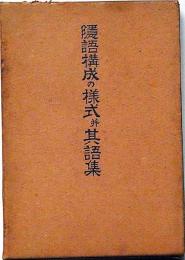 隠語構成の様式并其語集